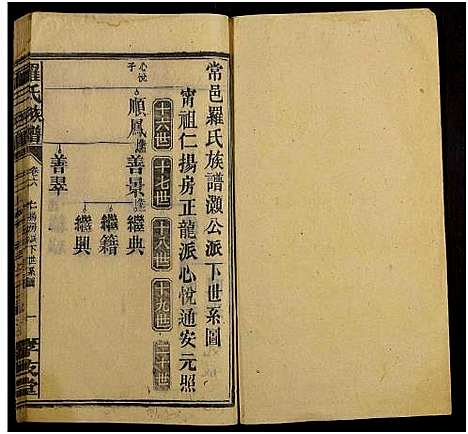 常邑羅氏族譜灝公派下世系圖
甯祖仁揚房正龍派心悅通安元照
十六世
十七世
十八世
十九世
二十世
心悅子
順鳳
善景
繼典
繼籍
善翠
繼興
羅氏族譜
仁揚房派下世系圖
一